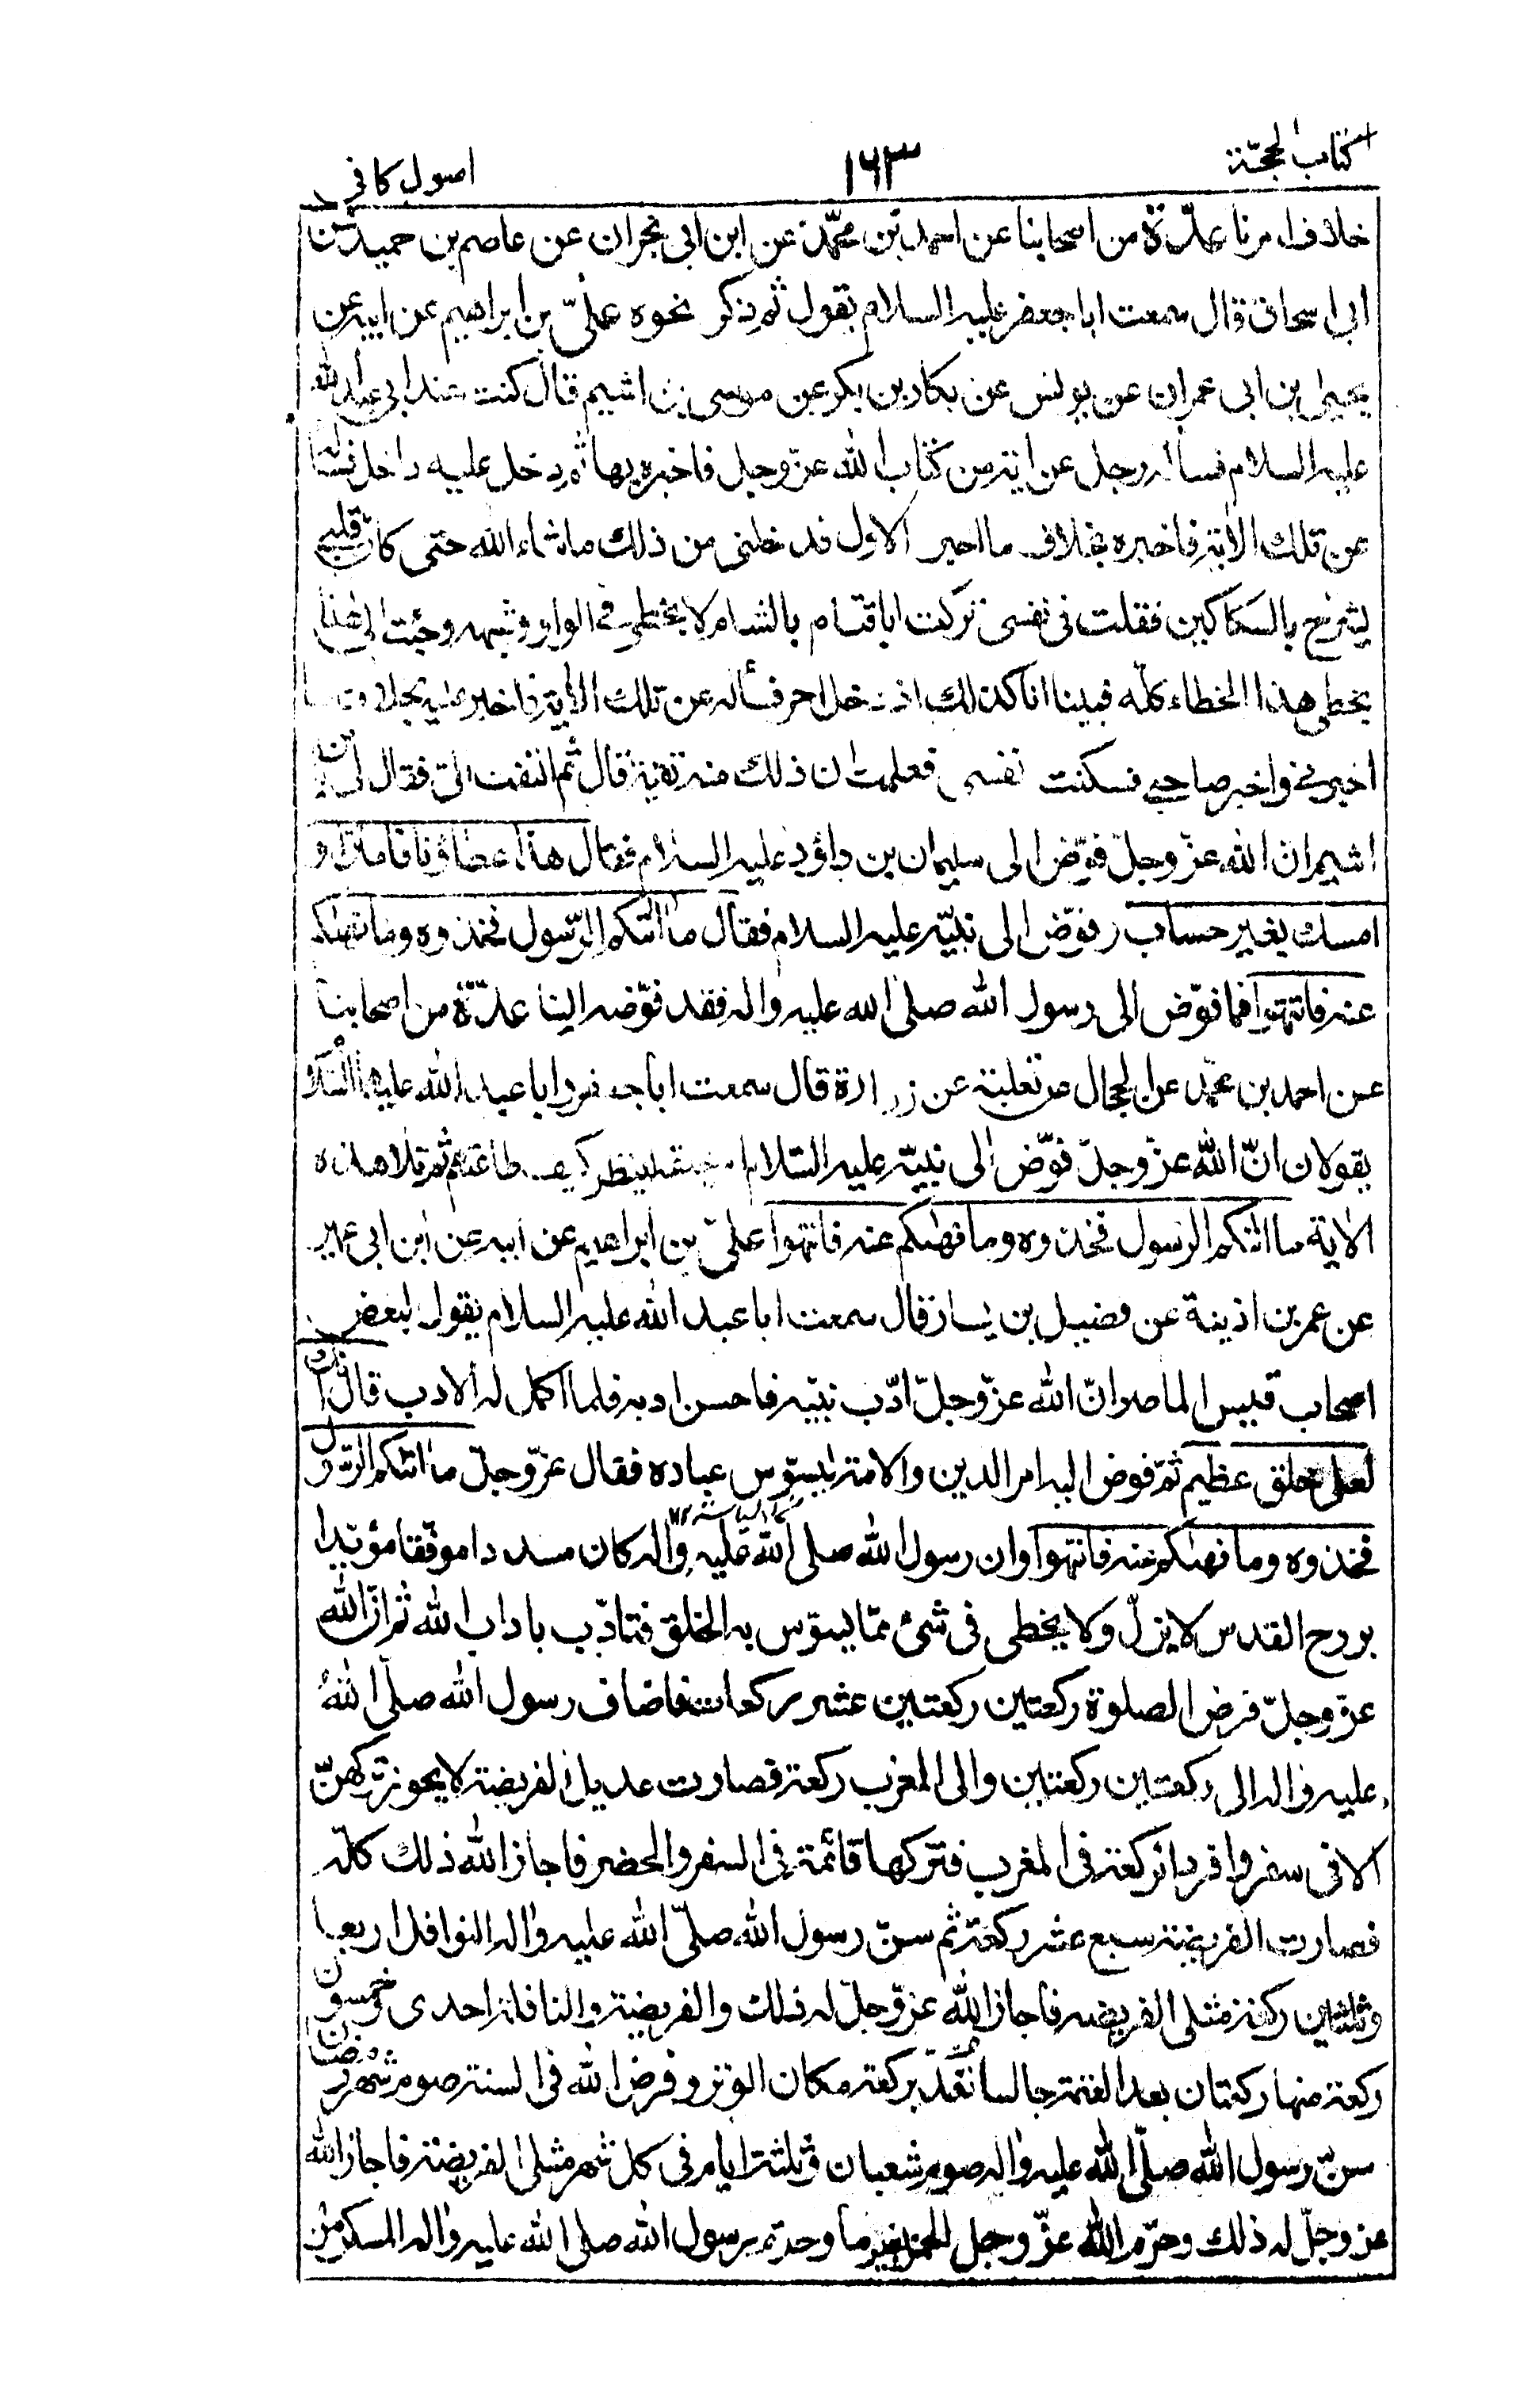 كتاب الحجّة
١٦٣
اصول كافى
خلاف امرنا عدّة من اصحابنا عن احمد بن محمّد عن ابن ابى نجران عن عاصم بن حميد عن
ابى اسحاق قال سمعت ابا جعفر عليه السلام يقول ثم ذكر نحوه علىّ بن ابراهيم عن ابيه عن
يحيى بن ابى عمران عن يونس عن بكار بن بكر عن موسى بن اشيم قال كنت عند ابى عبد الله
عليه السلام فسأله رجل عن اية من كتاب الله عزّ وجل فاخبره بها ثم دخل عليه داخل فسئله
عن تلك الاية فاخبره بخلاف ما اخبر الاول فدخلنى من ذلك ما شاء الله حتى كان قلبى
يشرح بالسكاكين فقلت فى نفسى تركت ابا قتادة بالشام لا يخطى فى الواو وشبهه وجئت الى هذا
يخطى هذا الخطاء كلّه فبينا انا كذلك اذ دخل اخر فسأله عن تلك الاية فاخبره بخلاف ما
اخبرنى واخبر صاحبى فسكنت نفسى فعلمت ان ذلك منه تقية قال ثم التفت الىّ فقال لى يا بن
اشيم ان الله عزّ وجلّ فوّض الى سليمان بن داؤد عليه السلام فقال هذا عطاؤنا فامنن او
امسك بغير حساب وفوّض الى نبيّه عليه السلام فقال ما اتيكم الرّسول فخذوه وما نهيكم
عنه فانتهوا فما فوّض الى رسول الله صلى الله عليه واله فقد فوّضه الينا عدّة من اصحابنا
عن احمد بن محمّد عن الحجال عن ثعلبة عن زرارة قال سمعت ابا جعفر وابا عبد الله عليهما السّلام
يقولان انّ الله عزّ وجلّ فوّض الى نبيّه عليه السّلام امر خلقه لينظر كيف طاعتهم ثم تلا هذه
الاية ما اتيكم الرسول فخذوه وما نهيكم عنه فانتهوا علىّ بن ابراهيم عن ابيه عن ابن ابى عمير
عن عمر بن اذينة عن فضيل بن يسار قال سمعت ابا عبد الله عليه السلام يقول لبعض
اصحاب قيس الماصر انّ الله عزّ وجلّ ادّب نبيّه فاحسن ادبه فلما اكمل له الادب قال انّك
لعلى خلق عظيم ثمّ فوض اليه امر الدين والامة ليسوّس عباده فقال عزّ وجلّ ما اتيكم الرّسول
فخذوه وما نهيكم عنه فانتهوا وان رسول الله صلى الله عليه واله كان مسددا موفّقا مؤيّدا
بروح القدس لا يزلّ ولا يخطى فى شئ ممّا يسوّس به الخلق فتادّب باداب الله ثم انّ الله
عزّ وجلّ فرض الصلوة ركعتين ركعتين عشر ركعات فاضاف رسول الله صلّى الله
عليه واله الى ركعتين ركعتين والى المغرب ركعة فصارت عديل الفريضة لا يجوز تركهنّ
الا فى سفر وافرد الركعة فى المغرب فتركها قائمة فى السفر والحضر فاجاز الله ذلك كلّه
فصارت الفريضة سبع عشر ركعة ثم سنّ رسول الله صلّى الله عليه واله النوافل اربعا
وثلثين ركعة مثلى الفريضة فاجاز الله عزّ وجلّ له ذلك والفريضة والنافلة احدى وخمسون
ركعة منها ركعتان بعد العتمة جالسا تعدّ بركعة مكان الوتر وفرض الله فى السنة صوم شهر رمضان
سنّ رسول الله صلّى الله عليه واله صوم شعبان وثلثة ايام فى كل شهر مثلى الفريضة فاجاز الله
عز وجلّ له ذلك وحرّم الله عزّ وجل الخمر بعينها وحرّم رسول الله صلى الله عليه واله المسكر من